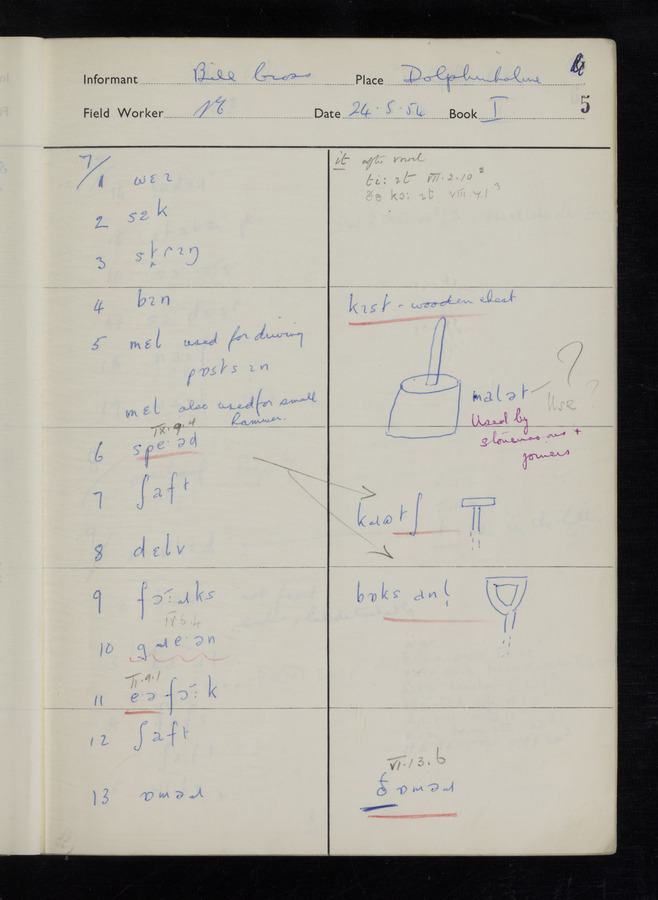 Informant Bill Cross Place Dolphinholme
Field Worker Date 24·5·54 Book I 5
7/1 wɛɪ
2 sɛk
3 strɪŋ
4 bɪn
5 mɛl used for driving
posts ɪn
mɛl also used for small
hammer.
IX·9·4
6 spe·əd
7 ʃaft
8 dɛlv
9 fɔ̄:ɹks
IX·6·4
10 gɹe·ən
II·9·1
11 eə fɔ̄:k
12 ʃaft
13 ɒməɹ
it after vowel
ti: ɪt VII·2·10 ²
ðə kɔ: ɪt VIII·4·1 ³
kɪst - wooden chest
malət ?
Use ?
Used by
stonemasons +
joiners
kɹʊtʃ
bɒks anl
VI·13·6
ɒməɹ